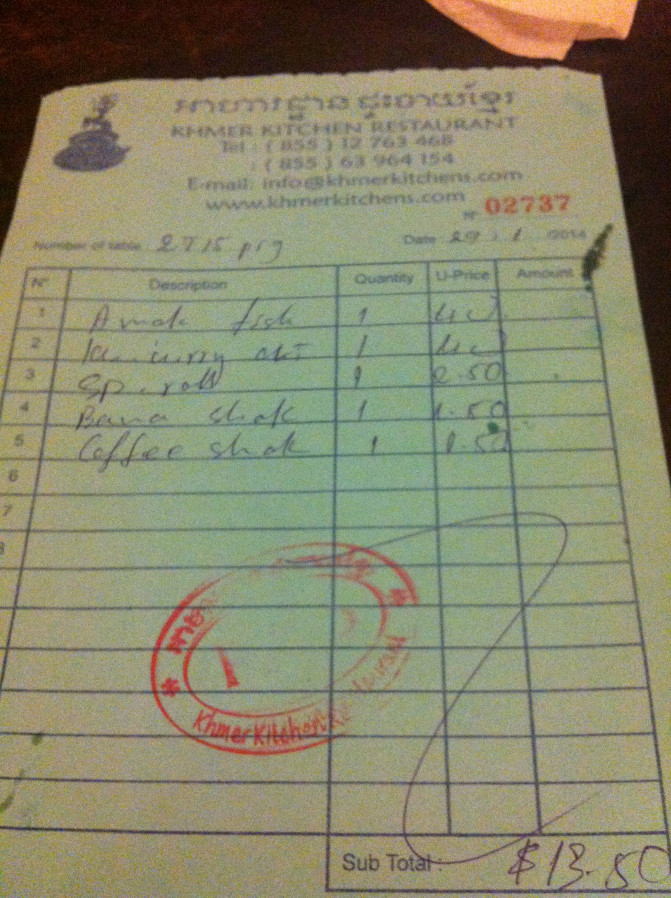 អាហារដ្ឋាន ផ្ទះបាយខ្មែរ
KHMER KITCHEN RESTAURANT
Tel : ( 855 ) 12 763 468
: ( 855 ) 63 964 154
E-mail: info@khmerkitchens.com
www.khmerkitchens.com
Nº 02737
Number of table Date 29 / 1 /2014
Nº Description Quantity U-Price Amount
1 Amok fish 1
2 curry 1
3 Sp. roll 1 2.50
4 Bana shak 1 1.50
5 Coffee shak 1 1.50
6
7
8
Khmer Kitchen
Sub Total : $13.50